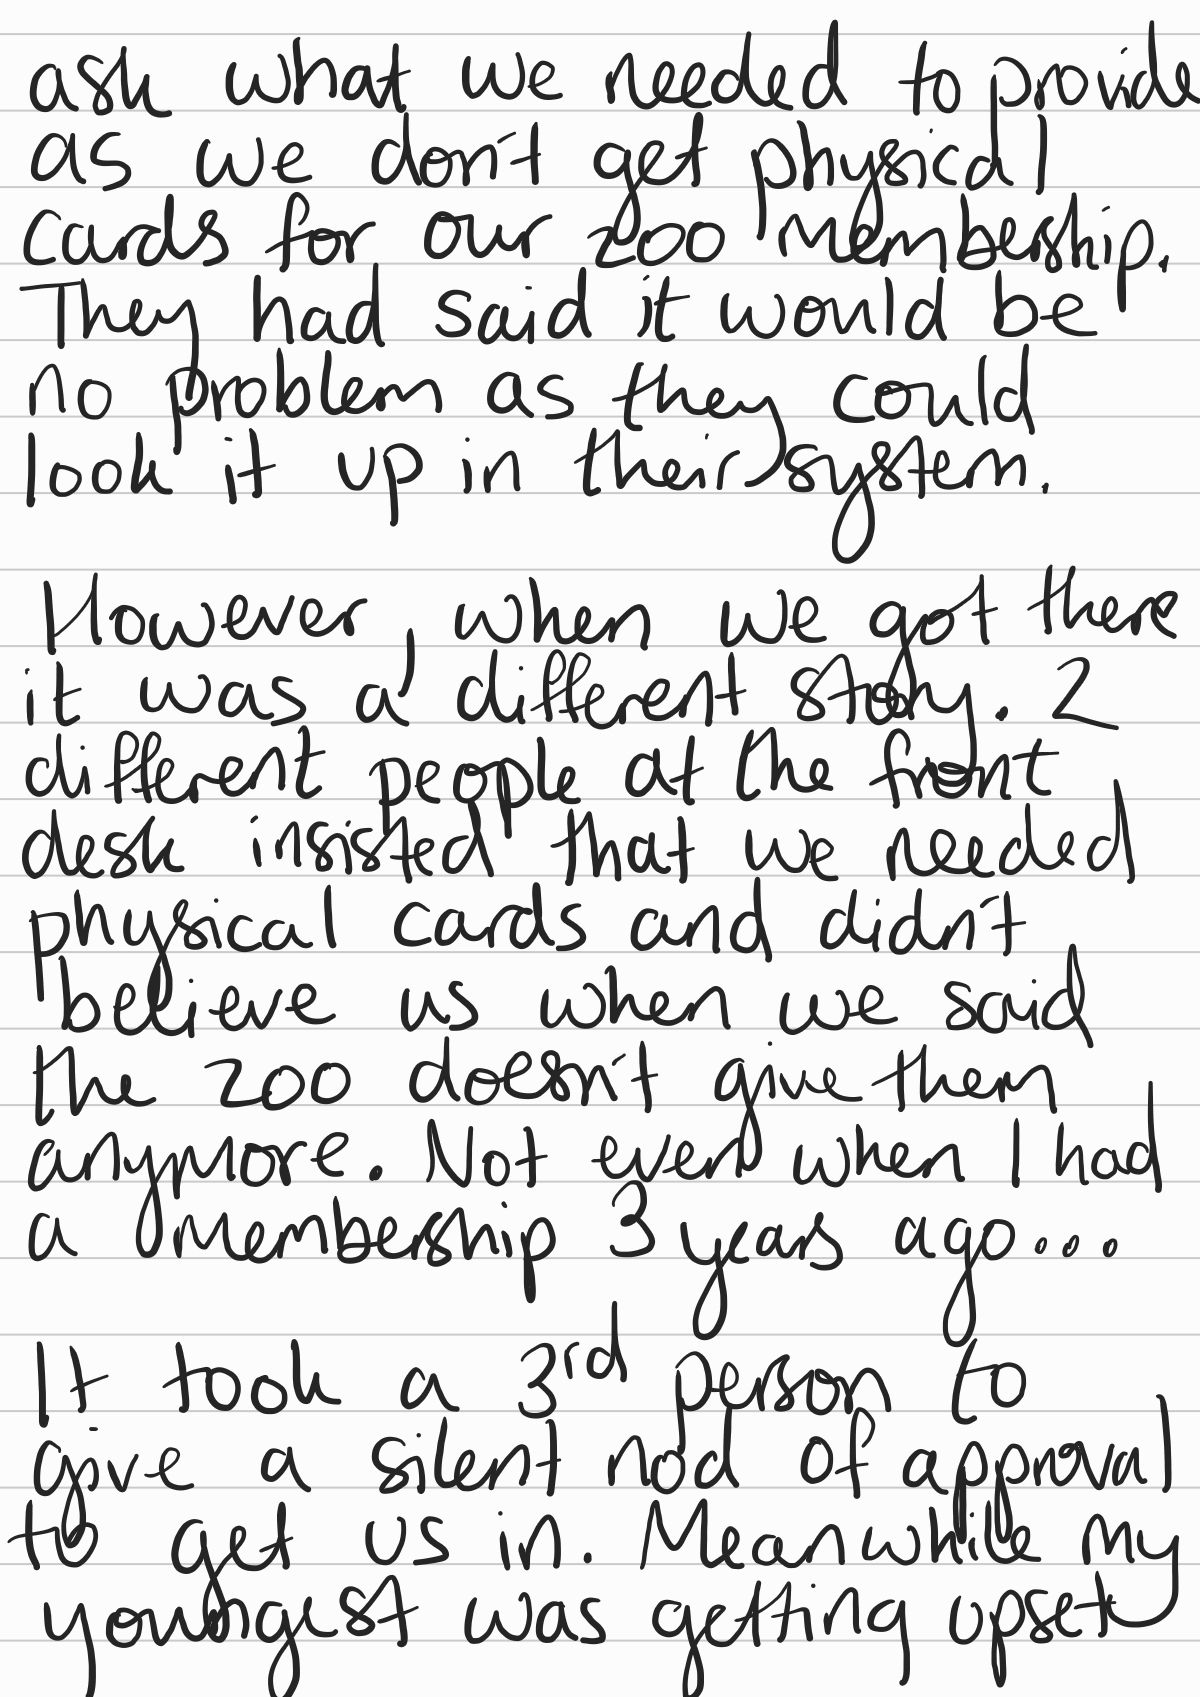 ask what we needed to provide
as we don't get physical
cards for our zoo membership.
They had said it would be
no problem as they could
look it up in their system.
However, when we got there
it was a different story. 2
different people at the front
desk insisted that we needed
physical cards and didn't
believe us when we said
the zoo doesn't give them
anymore. Not even when I had
a membership 3 years ago...
It took a 3rd person to
give a silent nod of approval
to get us in. Meanwhile my
youngest was getting upset